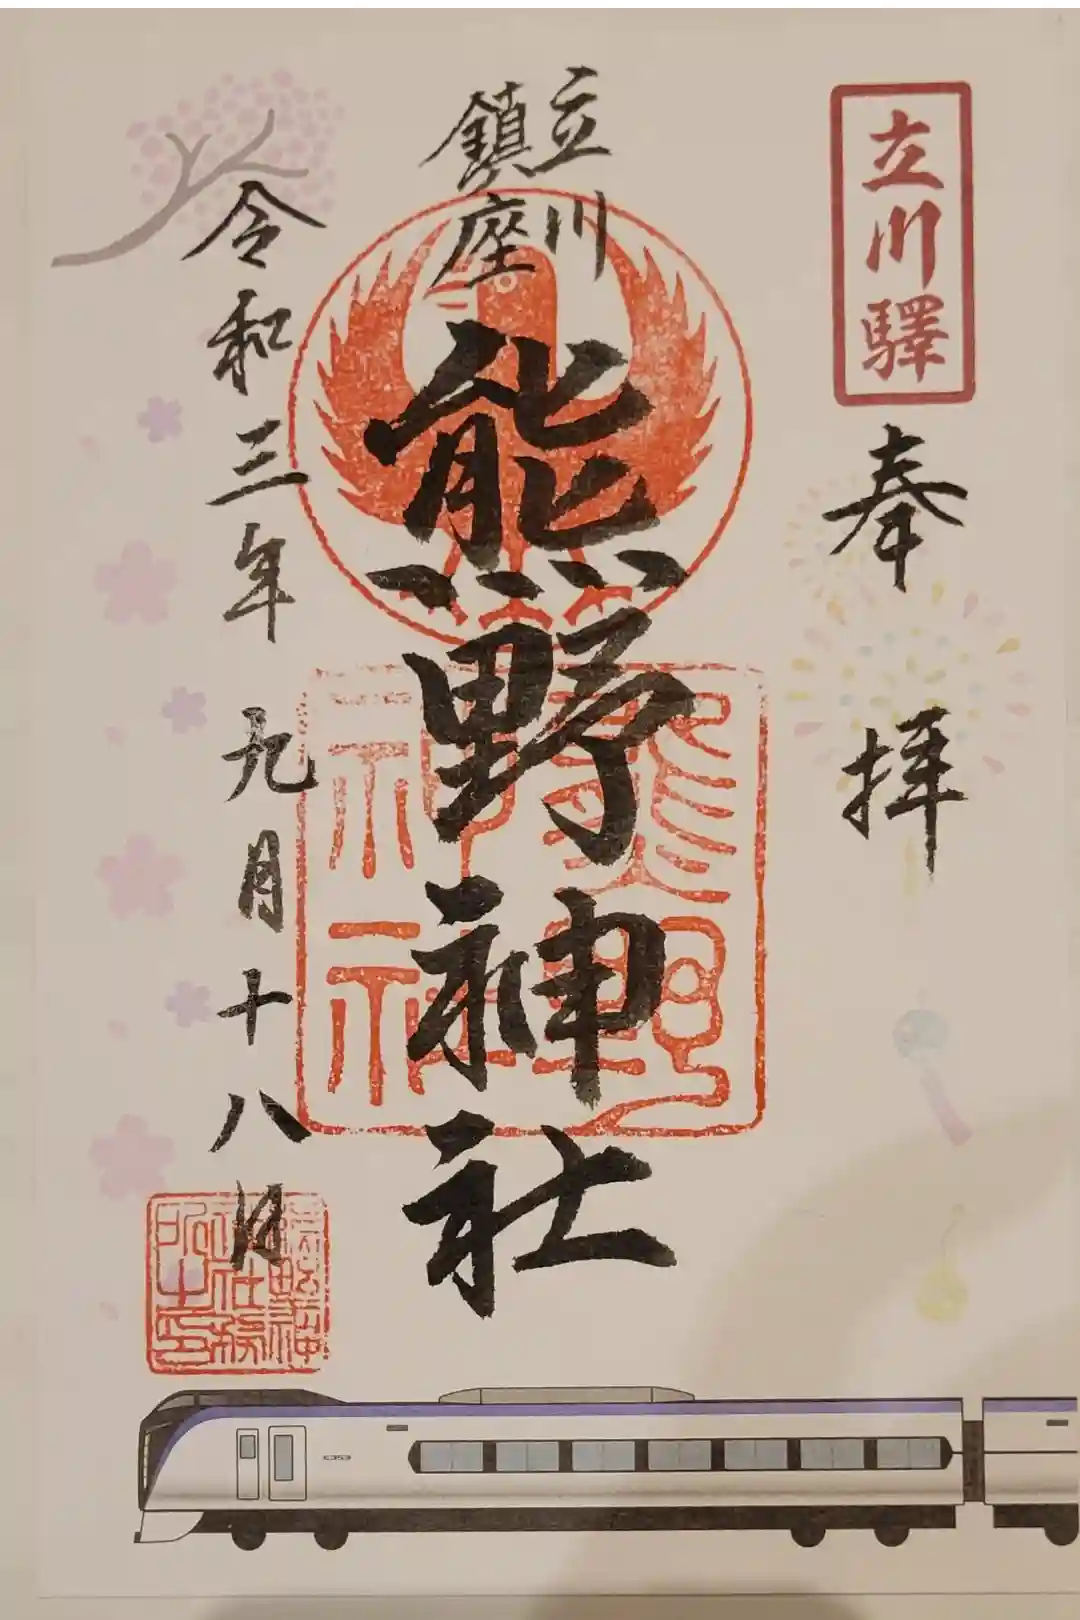 立川驛
奉拝
立川
鎮座
熊野神社
熊野
神社
令和三年九月十八日
熊野神
社務
所之印
E353